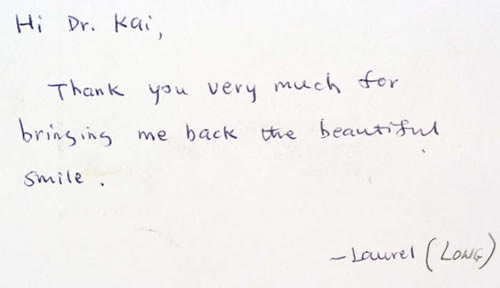 Hi Dr. Kai,
Thank you very much for
bringing me back the beautiful
smile.
~Laurel (LONG)